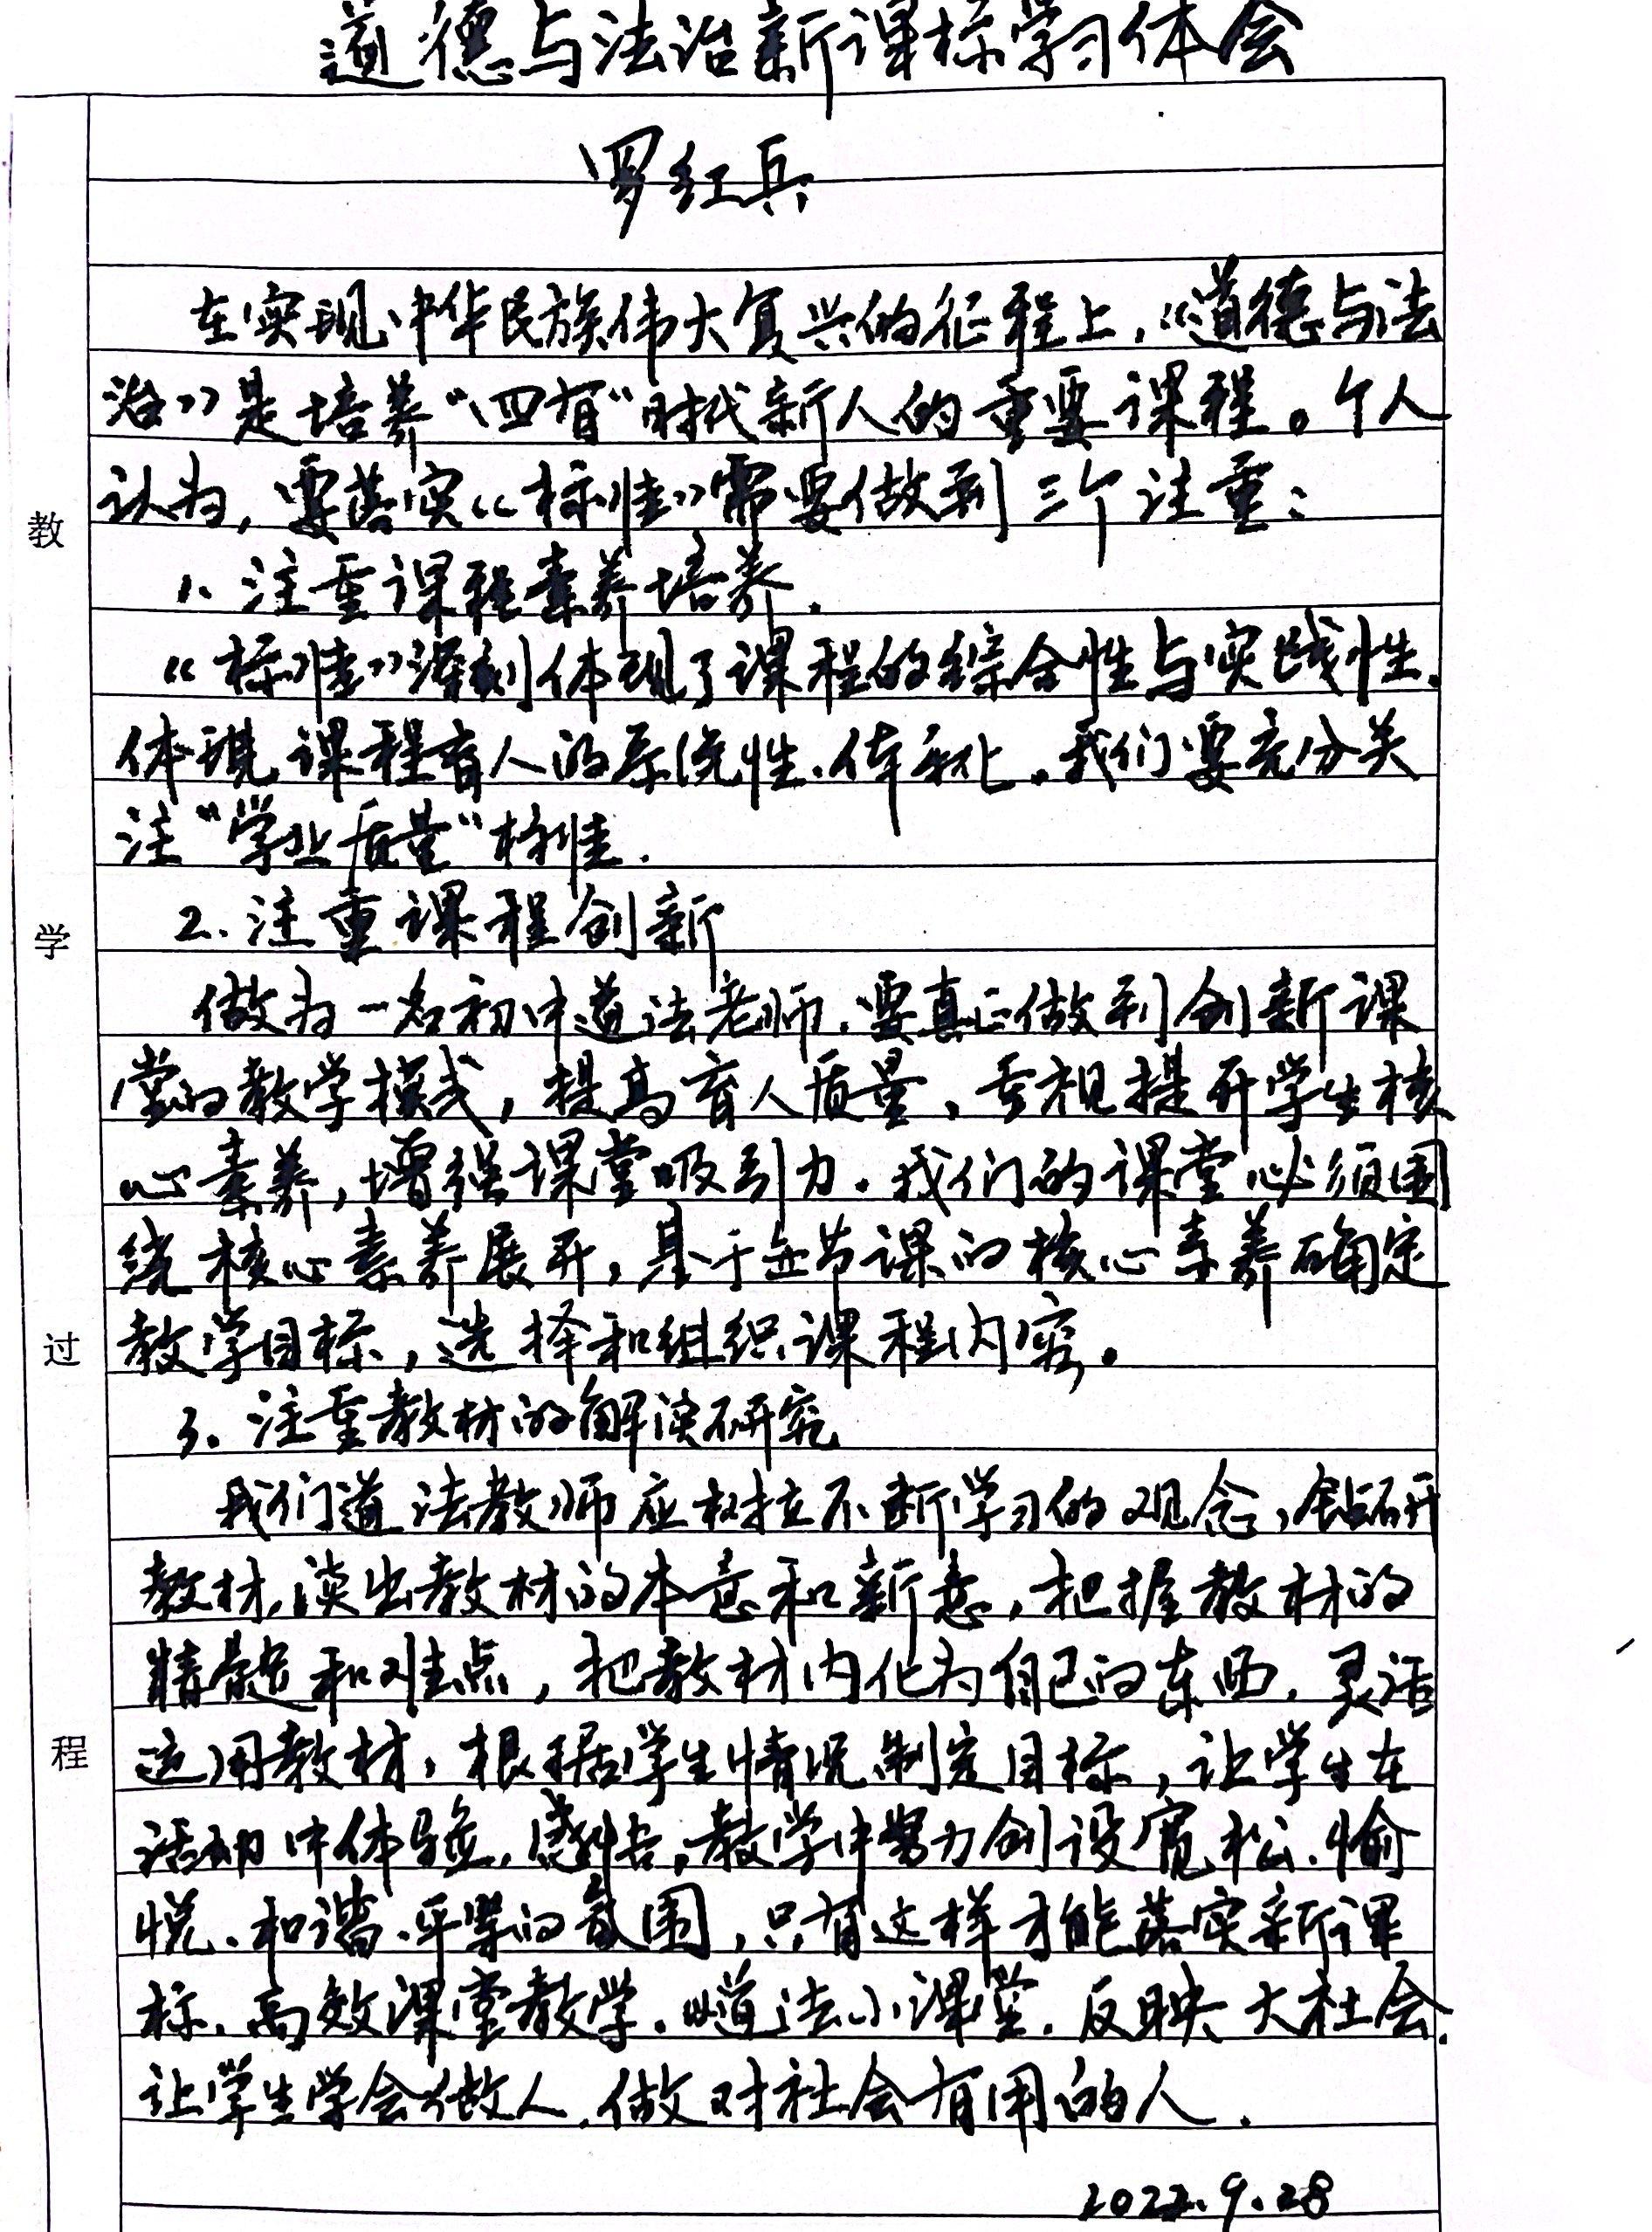 道德与法治新课标学习体会
罗红兵
在实现中华民族伟大复兴的征程上，《道德与法
治》是培养“四有”时代新人的重要课程。个人
认为，要落实《标准》需要做到三个注重：
1、注重课程素养培养.
《标准》深刻体现了课程的综合性与实践性.
体现课程育人的系统性、体系化。我们要充分关
注“学业质量”标准.
2.注重课程创新
做为一名初中道法老师.要真正做到创新课
堂的教学模式，提高育人质量、重视提升学生核
心素养，增强课堂吸引力.我们的课堂必须围
绕核心素养展开，基于每节课的核心素养确定
教学目标，选择和组织课程内容。
3.注重教材的解读研究
我们道法教师应树立不断学习的观念，钻研
教材,读出教材的本意和新意，把握教材的
精髓和难点，把教材内化为自己的东西.灵活
运用教材，根据学生情况制定目标，让学生在
活动中体验.感悟,教学中努力创设宽松.愉
悦、和谐.平等的氛围，只有这样才能落实新课
标.高效课堂教学.以道法小课堂.反映大社会.
让学生学会做人.做对社会有用的人.
2022.9.28
教
学
过
程